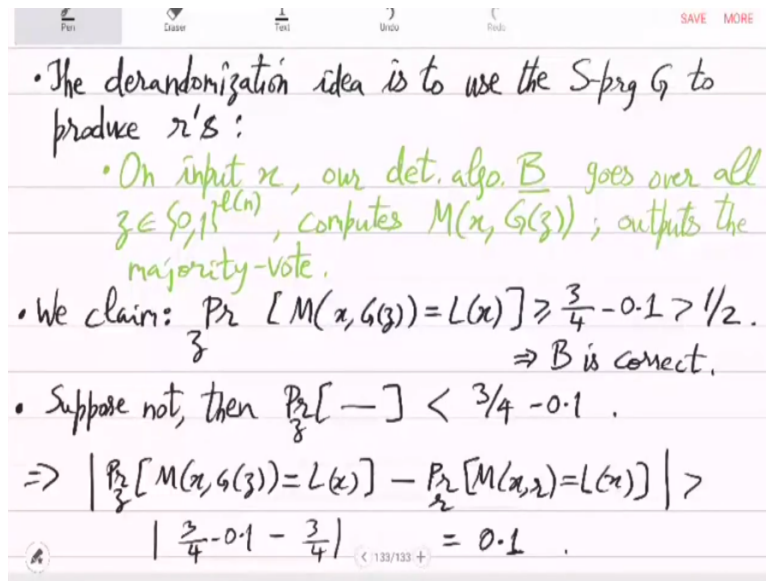 Pen Eraser Text Undo Redo SAVE MORE
• The derandomization idea is to use the S-prg G to
produce r's :
• On input x, our det. algo. B goes over all
z ∈ {0,1}^ℓ(n), computes M(x, G(z)) ; outputs the
majority-vote.
• We claim: Pr_z [M(x, G(z)) = L(x)] ≥ 3/4 - 0.1 > 1/2 .
⇒ B is correct.
• Suppose not, then Pr_z[ — ] < 3/4 - 0.1 .
⇒ | Pr_z[M(x, G(z)) = L(x)] - Pr_r[M(x,r) = L(x)] | >
| 3/4 - 0.1 - 3/4 | = 0.1 .
< 133/133 +